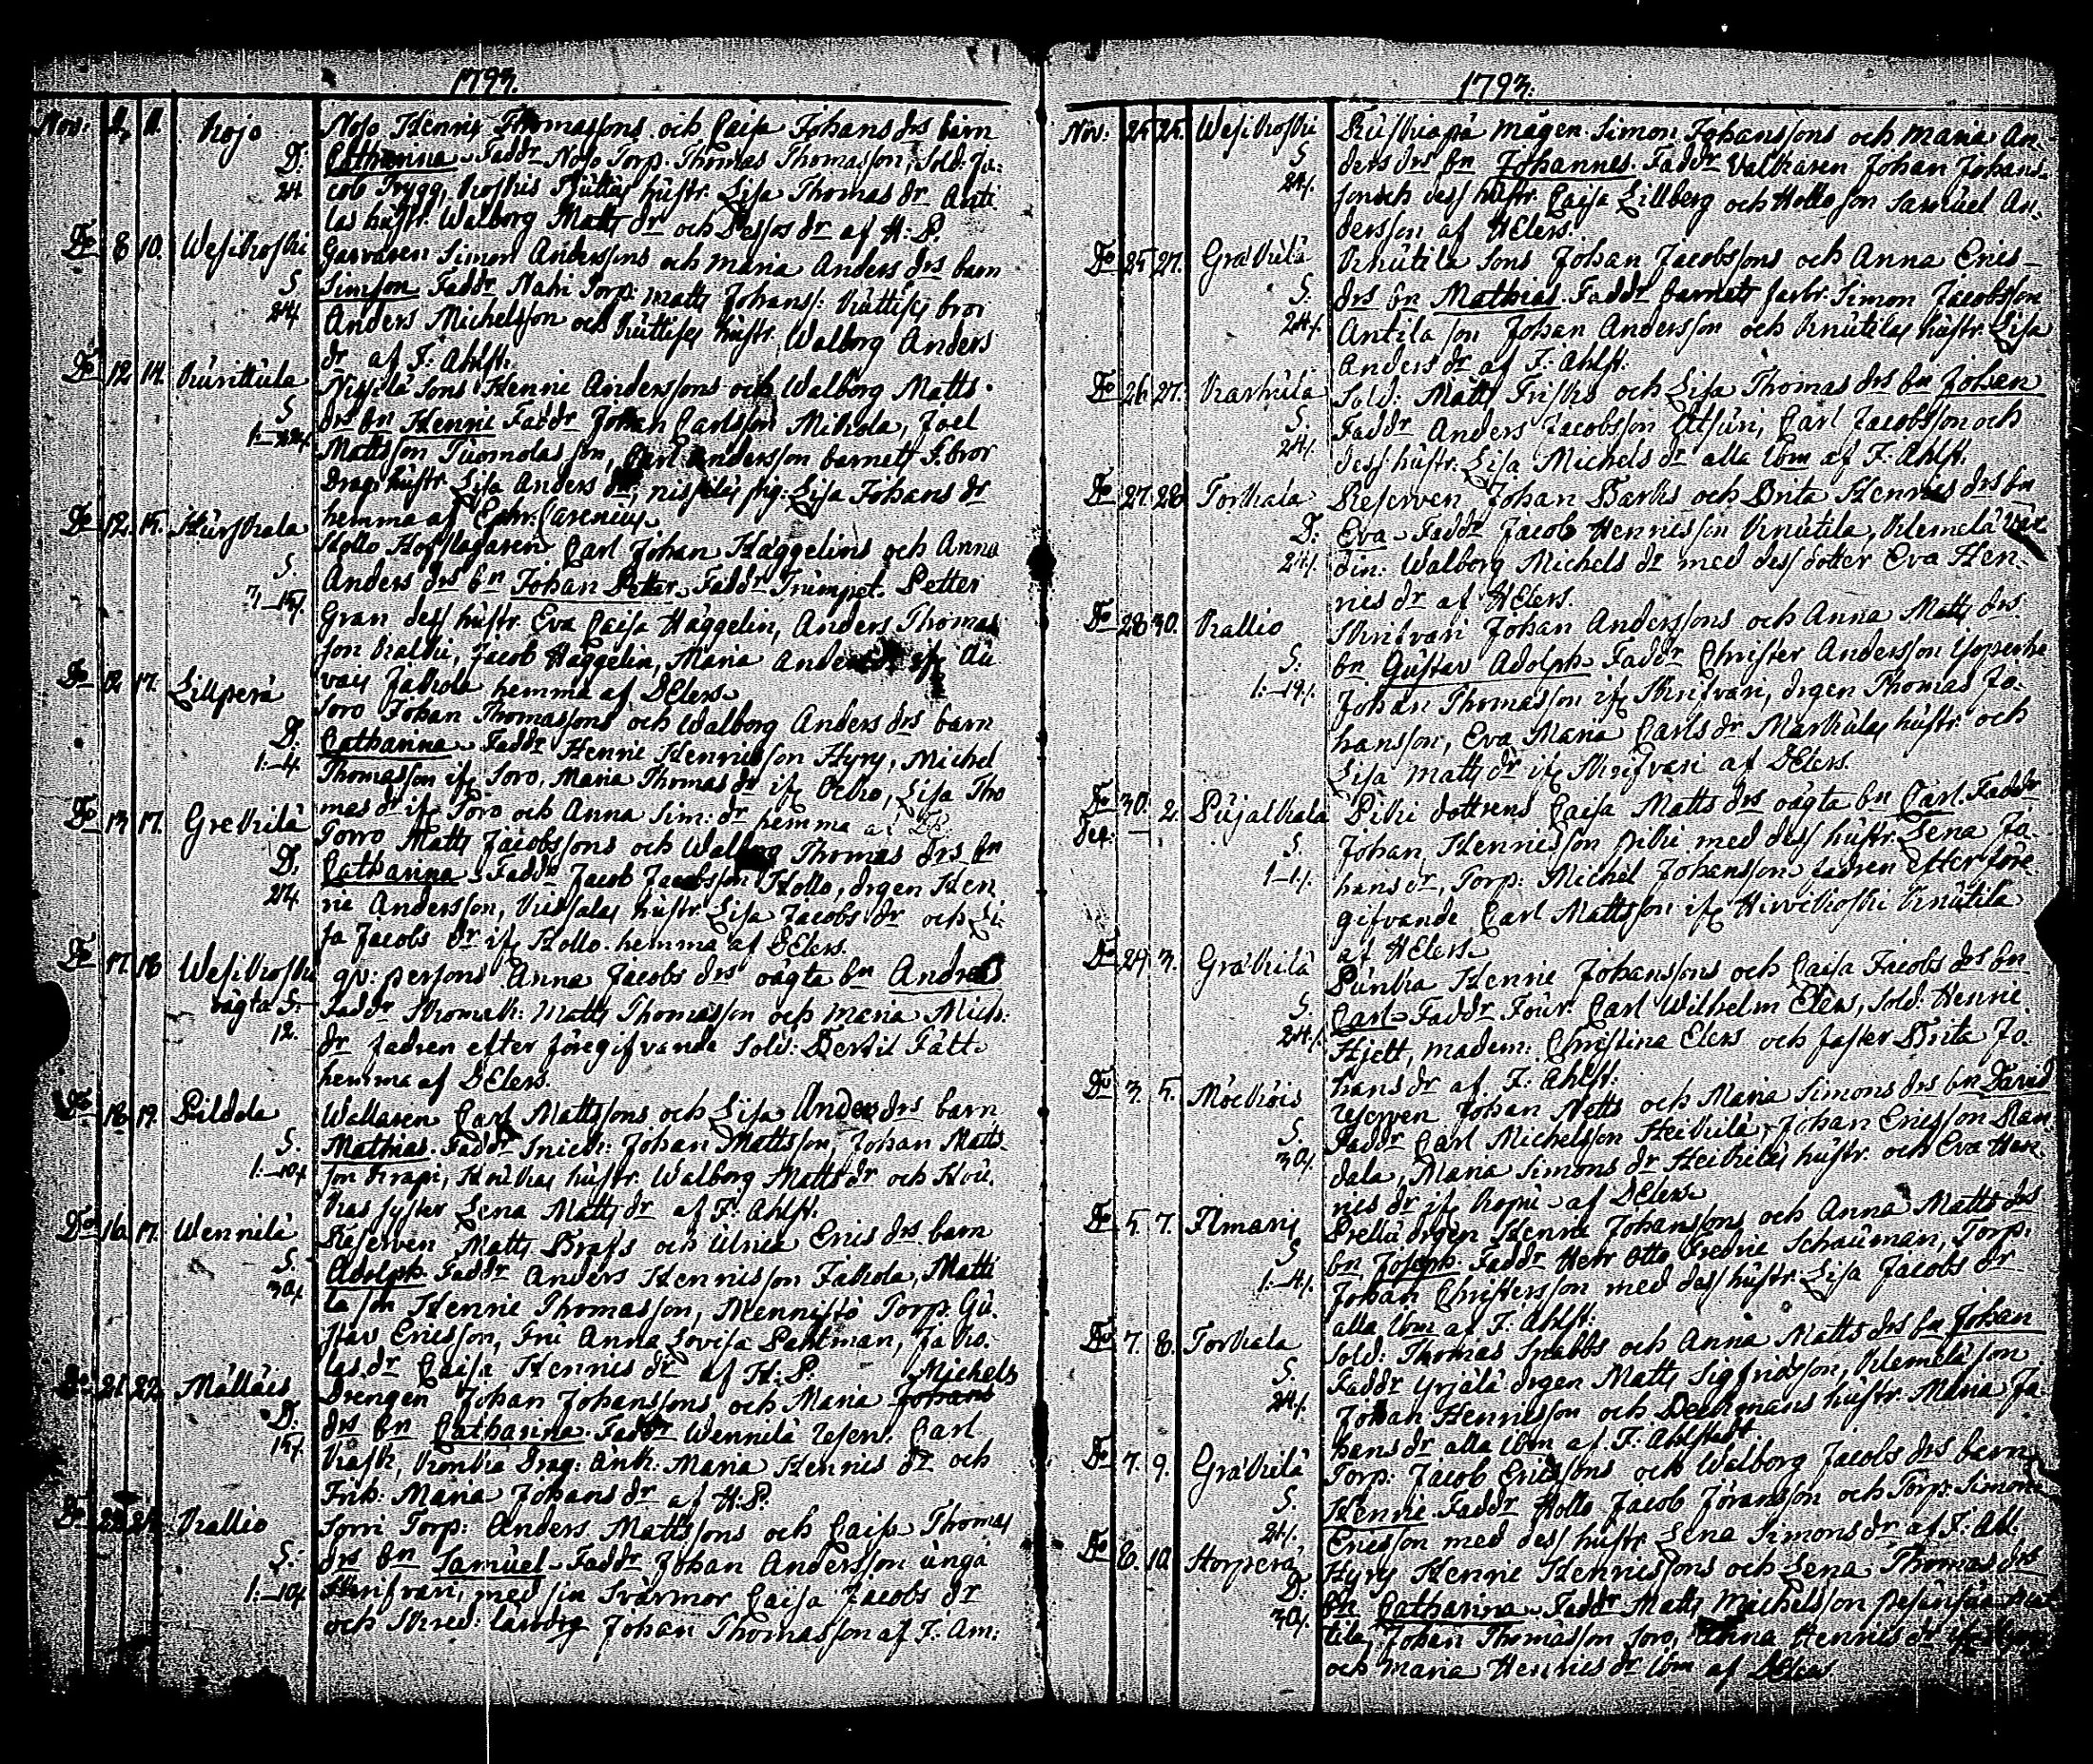 1793.
Nov: 11. Kojo Nojo Henric Thomassons och Caisa Johans drs barn
D. Catharina Faddr Nojo Torp. Thomas Thomasson, Sold: Ja:
24 cob Trygg, hustr. Lisa Thomas dr Anti
las hustr. Walborg Matts dr och Dess dr af H: P.
Do 8 10. Wesikoski Garvaren Simon Anderssons och Maria Anders drs barn
S Simson Faddr Nahi Torp: Matts Johanss: Kuttisis bror
24 Anders Michelsson och Kuttises hustr. Walborg Anders
dr af F: Ahlst:
Do 12 14. Kunittula Nissilä Sons Henric Anderssons och Walborg Matts
S drs bn Henric Faddr Johan Carlsson Mikola, Joel
Mattsson Tuomolas son, Carl Andersson barnets F. bror
Drag: hustr Lisa Anders dr, Nissiläs pig: Lisa Johans dr
hemma af Ephr: Carenius
Do 12. 15. Hurskala Kollo Hofslagaren Carl Johan Häggelins och Anna
S. Anders drs bn Johan Petter Faddr Trumpet. Petter
Gran dess hustr. Eva Caisa Häggelin, Anders Thomas
son Kalkii, Jacob Häggelin, Maria
Jakola hemma af DElers
Do 12 17. Lillperä Soro Johan Thomassons och Walborg Anders drs barn
D. Catharina Faddr Henric Henricsson Hyry, Michel
1:-4 Thomasson ifr Soro, Maria Thomas dr ifr Ocho, Lisa Tho
mas dr ifr Soro och Anna Sim: dr hemma af
Do 13 17. Grekilä Torro Matts Jacobssons och Walborg Thomas drs bn
D. Catharina Faddr Jacob Jacobsson Kollo, drgen Hen
24 ric Andersson, hustr Lisa Jacobs dr och Li
sa Jacobs dr ifr Kollo hemma af DElers.
Do 17. 18 Wesikoski qv: persons Anna Jacobs drs oägta bn Andreas
oägta S. Faddr Skomak: Matts Thomasson och Maria Mich:
12. dr fadren efter föregifvande Sold: Bertil Fält
hemma af DElers.
Do 18. 19. Pildola Wallaren Carl Mattssons och Lisa Anders drs barn
S. Mathias. Faddr Snick: Johan Mattsson Johan Matts
1:-10 son Krapi, Koukas hustr. Walborg Matts dr och Kou
kas syster Lena Matts dr af F: Ahlst.
Do 16. 17. Wennilä Reserven Matts Brafs och Ulrica Erics drs barn
S. Adolph Faddr Anders Henricsson Jakola, Matti
30 la son Henric Thomasson, Mennistö Torp. Gu
stav Ericsson, Fru Anna Lovisa Pahlman, Jako
las dr Caisa Henrics dr af H: P.
Do 21. 22. Mälläis Drengen Johan Johanssons och Maria Johans Michels
D: drs bn Catharina Faddr Wennilä reserv. Carl
15 Rask, Konkia Drag: änk: Maria Henrics dr och
Pik: Maria Johans dr af H: P.
Kallio Sorri Torp: Anders Mattssons och Caisa Thomas
S: drs bn Samuel Faddr Johan Andersson unga
1:-10 Skrifvari, med sin Svärmor Caisa Jacobs dr
och Skred: lärdrg Johan Thomasson af F: Am:
1793.
Nov: 24 25. Wesikoski mågen Simon Johanssons och Maria An
S ders drs bn Johannes Faddr Valkaren Johan Johans
24 son och dess hustr. Caisa Lillberg och Kollo son Samuel An
dersson af HElers.
Do 25 27. Gräkilä Knutila Sons Johan Jacobssons och Anna Erics
S. drs bn Mathias Faddr barnets farbr: Simon Jacobsson
24 Antila son Johan Andersson och Knutilas hustr. Lisa
Anders dr af F: Ahlst.
Do 26 27. Karhula Sold: Matts Frisks och Lisa Thomas drs bn Johan
S. Faddr Anders Jacobsson, Carl Jacobsson och
24 dess hustr. Lisa Michels dr alla ibm af F: Ahlst.
Do 27. 28. Torkala Reserven Johan Barks och Brita Henrics drs bn
D: Eva Faddr Jacob Henricsson Knutila, Klemelä Vär
24 din: Walborg Michels dr med dess dotter Eva Hen
rics dr af HElers.
Do 28 30. Kallio Skrifvari Johan Anderssons och Anna Matts drs
S. bn Gustav Adolph Faddr Christer Andersson
1:-19 Johan Thomasson ifr Skrifvari, drgen Thomas Jo
hansson, Eva Maria Carls dr Markulas hustr och
Lisa Matts dr ifr Skrifvari af DElers.
Do 30. 2. Pujalkala Piki dottrens Caisa Matts drs oägta bn Carl. Faddr
S. Johan Henricsson Piki med dess hustr. Lena Jo
1-1 hans dr, Torp: Michel Johansson fadren efter före
gifvande Carl Mattsson ifr Hirvikoski Knutila
af HElers
Do 29 3. Gräkilä Punkia Henric Johanssons och Caisa Jacobs drs bn
S. Carl Faddr Four: Carl Wilhelm Elers, Sold: Henric
24 Hjelt, madem: Christina Elers och faster Brita Jo
hans dr af F: Ahlst:
Do 3. 5. Möckois reserven Johan Netts och Maria Simons drs bn David
S. Faddr Carl Michelsson Heikilä, Johan Ericsson Ran
30 dala, Maria Simons dr Heikiläs hustr. och Eva Hen
rics dr ifr af DElers
Do 5. 7. Ilmaris Prellu drgen Henric Johanssons och Anna Matts drs
S bn Joseph Faddr Herr Otto Fredric Schauman, Torp:
1:-4 Johan Christersson med dess hustr. Lisa Jacobs dr
alla ibm af F: Ahlst:
Do 7. 8. Torkala Sold: Thomas Snabbs och Anna Matts drs bn Johan
S. Faddr Yrjälä drgen Matts Sigfridsson, Klemelä son
24 Johan Henricsson och Deckmans hustr. Maria Jo
hans dr alla ibm af F: Ahlstedt.
Do 7. 9. Gräkilä Torp: Jacob Ericssons och Walborg Jacobs drs barn
S. Henric Faddr Kollo Jacob Jöransson och Torp: Simon
24 Ericsson med dess hustr Lena Simons dr af F: Ahl.
Do 8. 10. Storperä Hyry Henric Henricssons och Lena Thomas drs
D. bn Catharina Faddr Matts Michelsson
30 tila, Johan Thomasson Soro, Anna Henrics dr
och Maria Henrics dr ibm af DElers